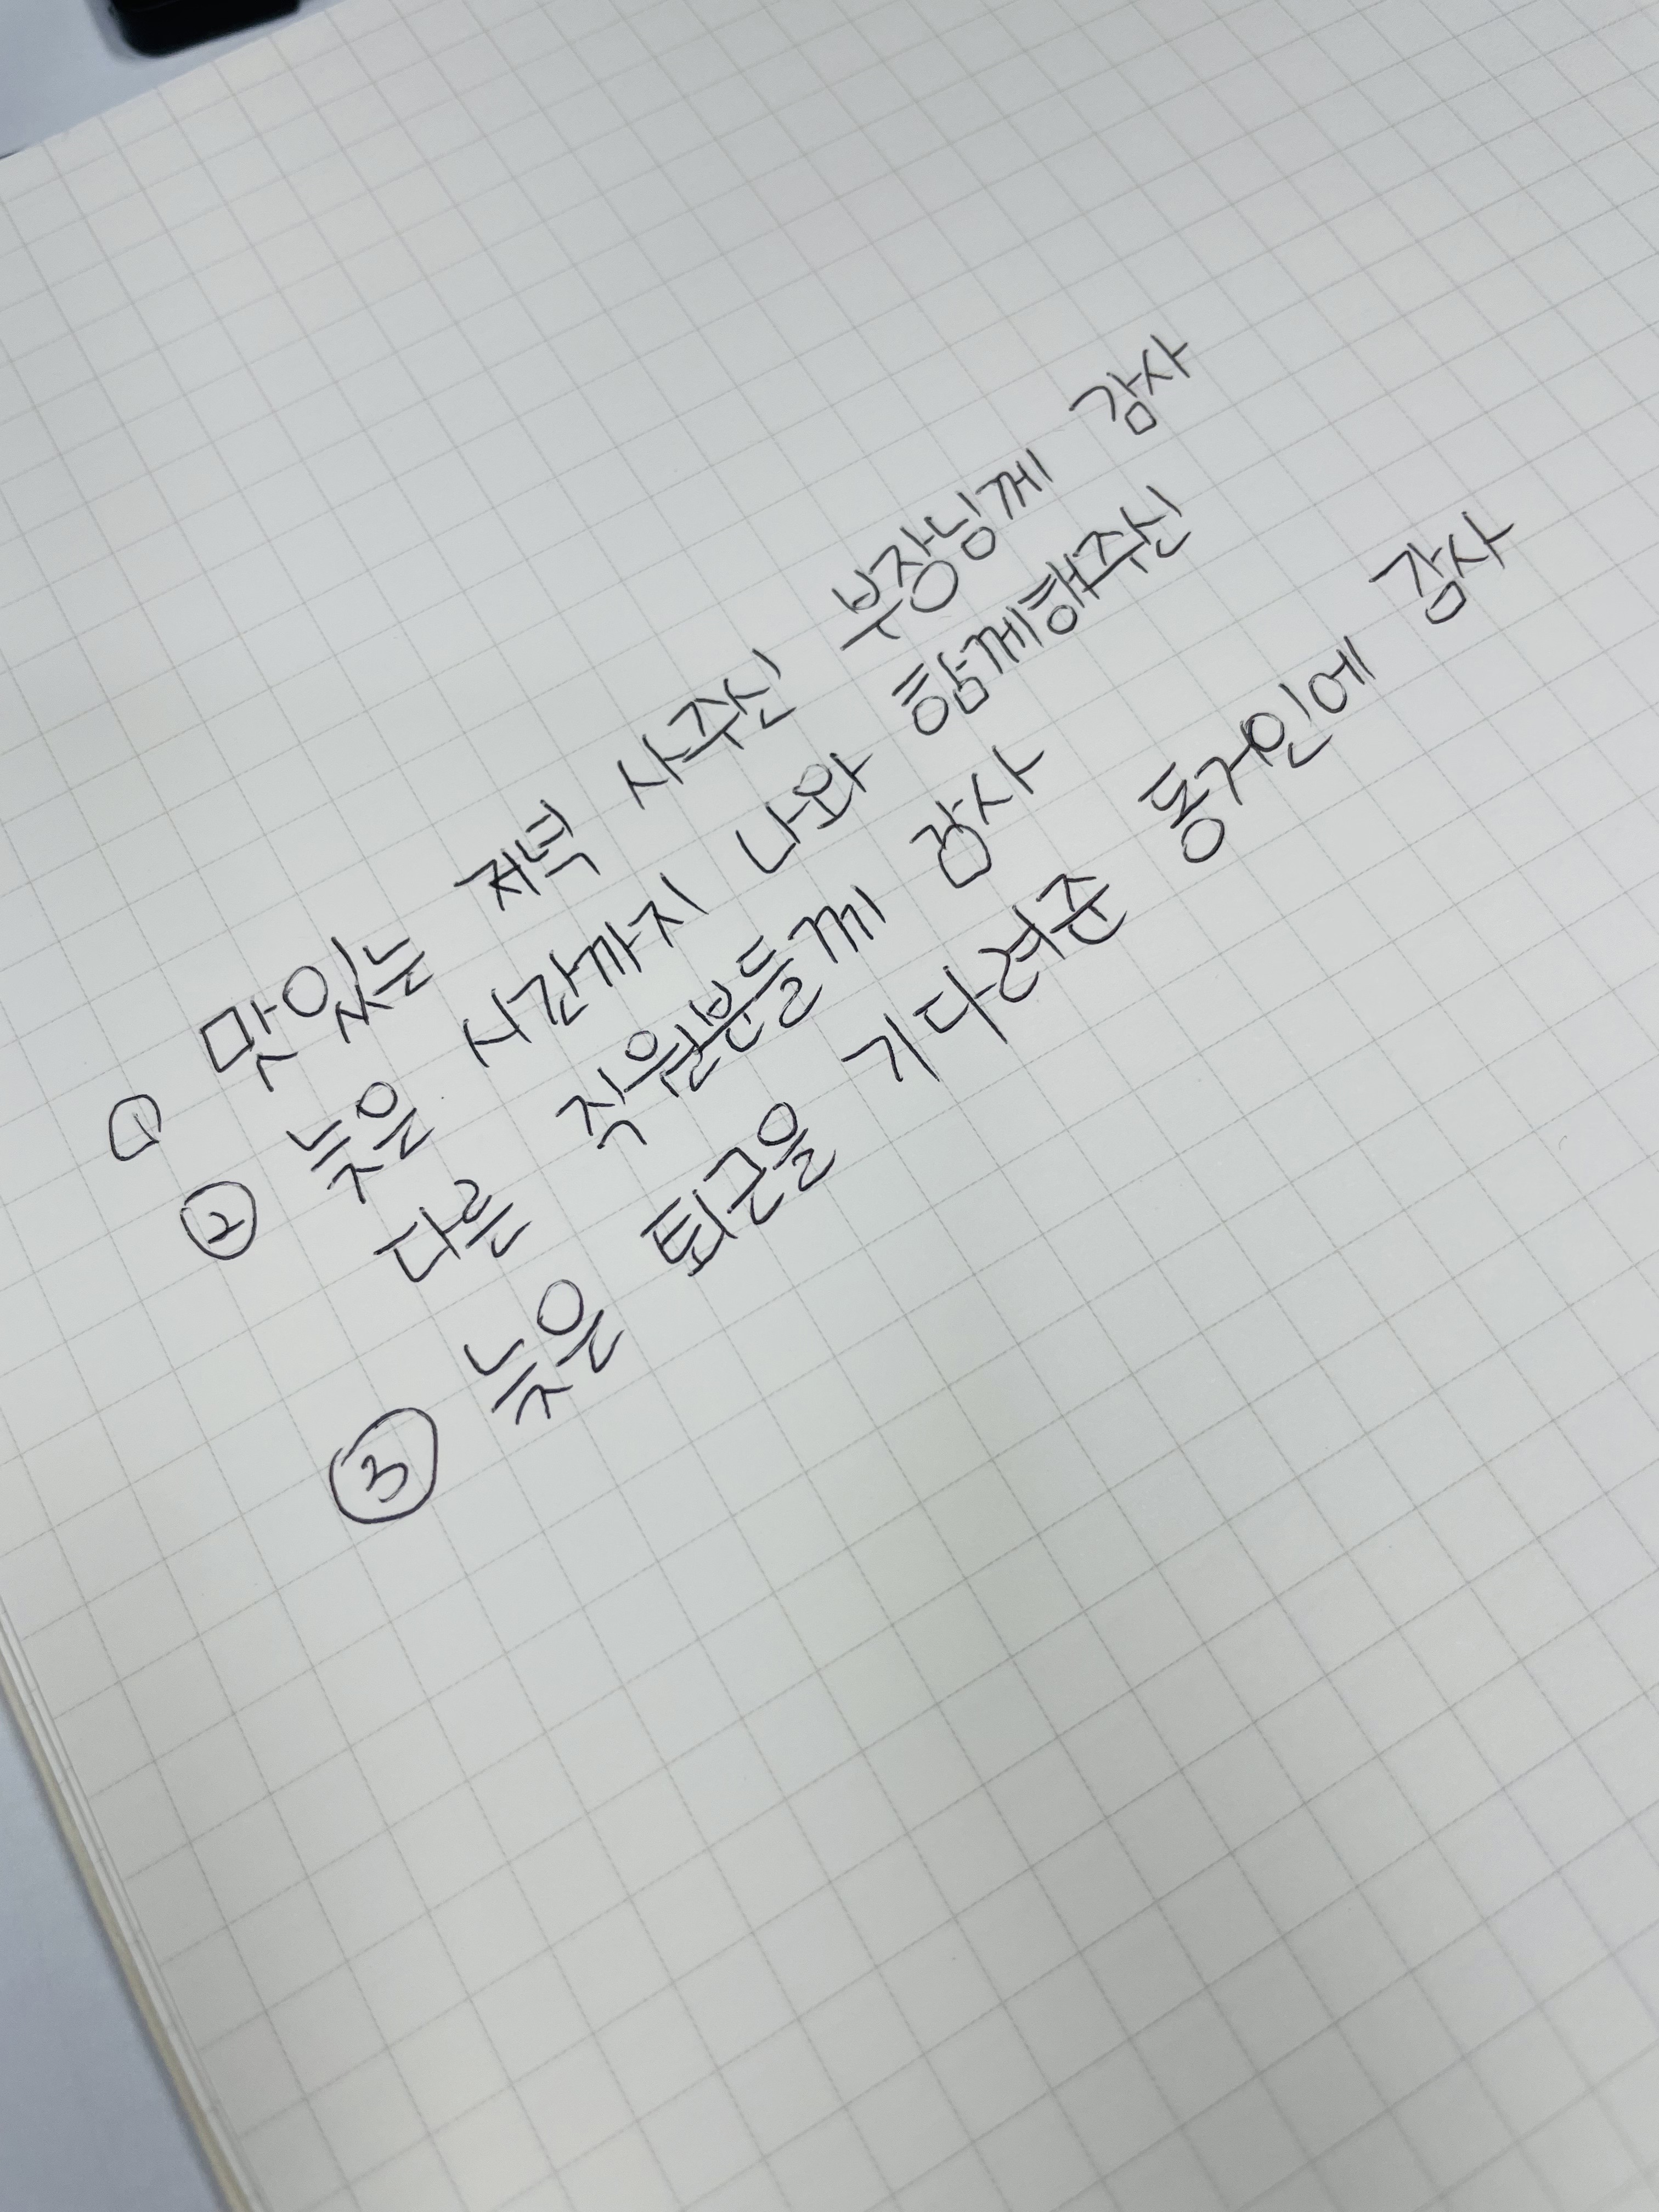 ① 맛있는 저녁 사주신 부장님께 감사
② 늦은 시간까지 나와 함께해주신
다른 직원분들께 감사
③ 늦은 퇴근을 기다려준 동거인에 감사